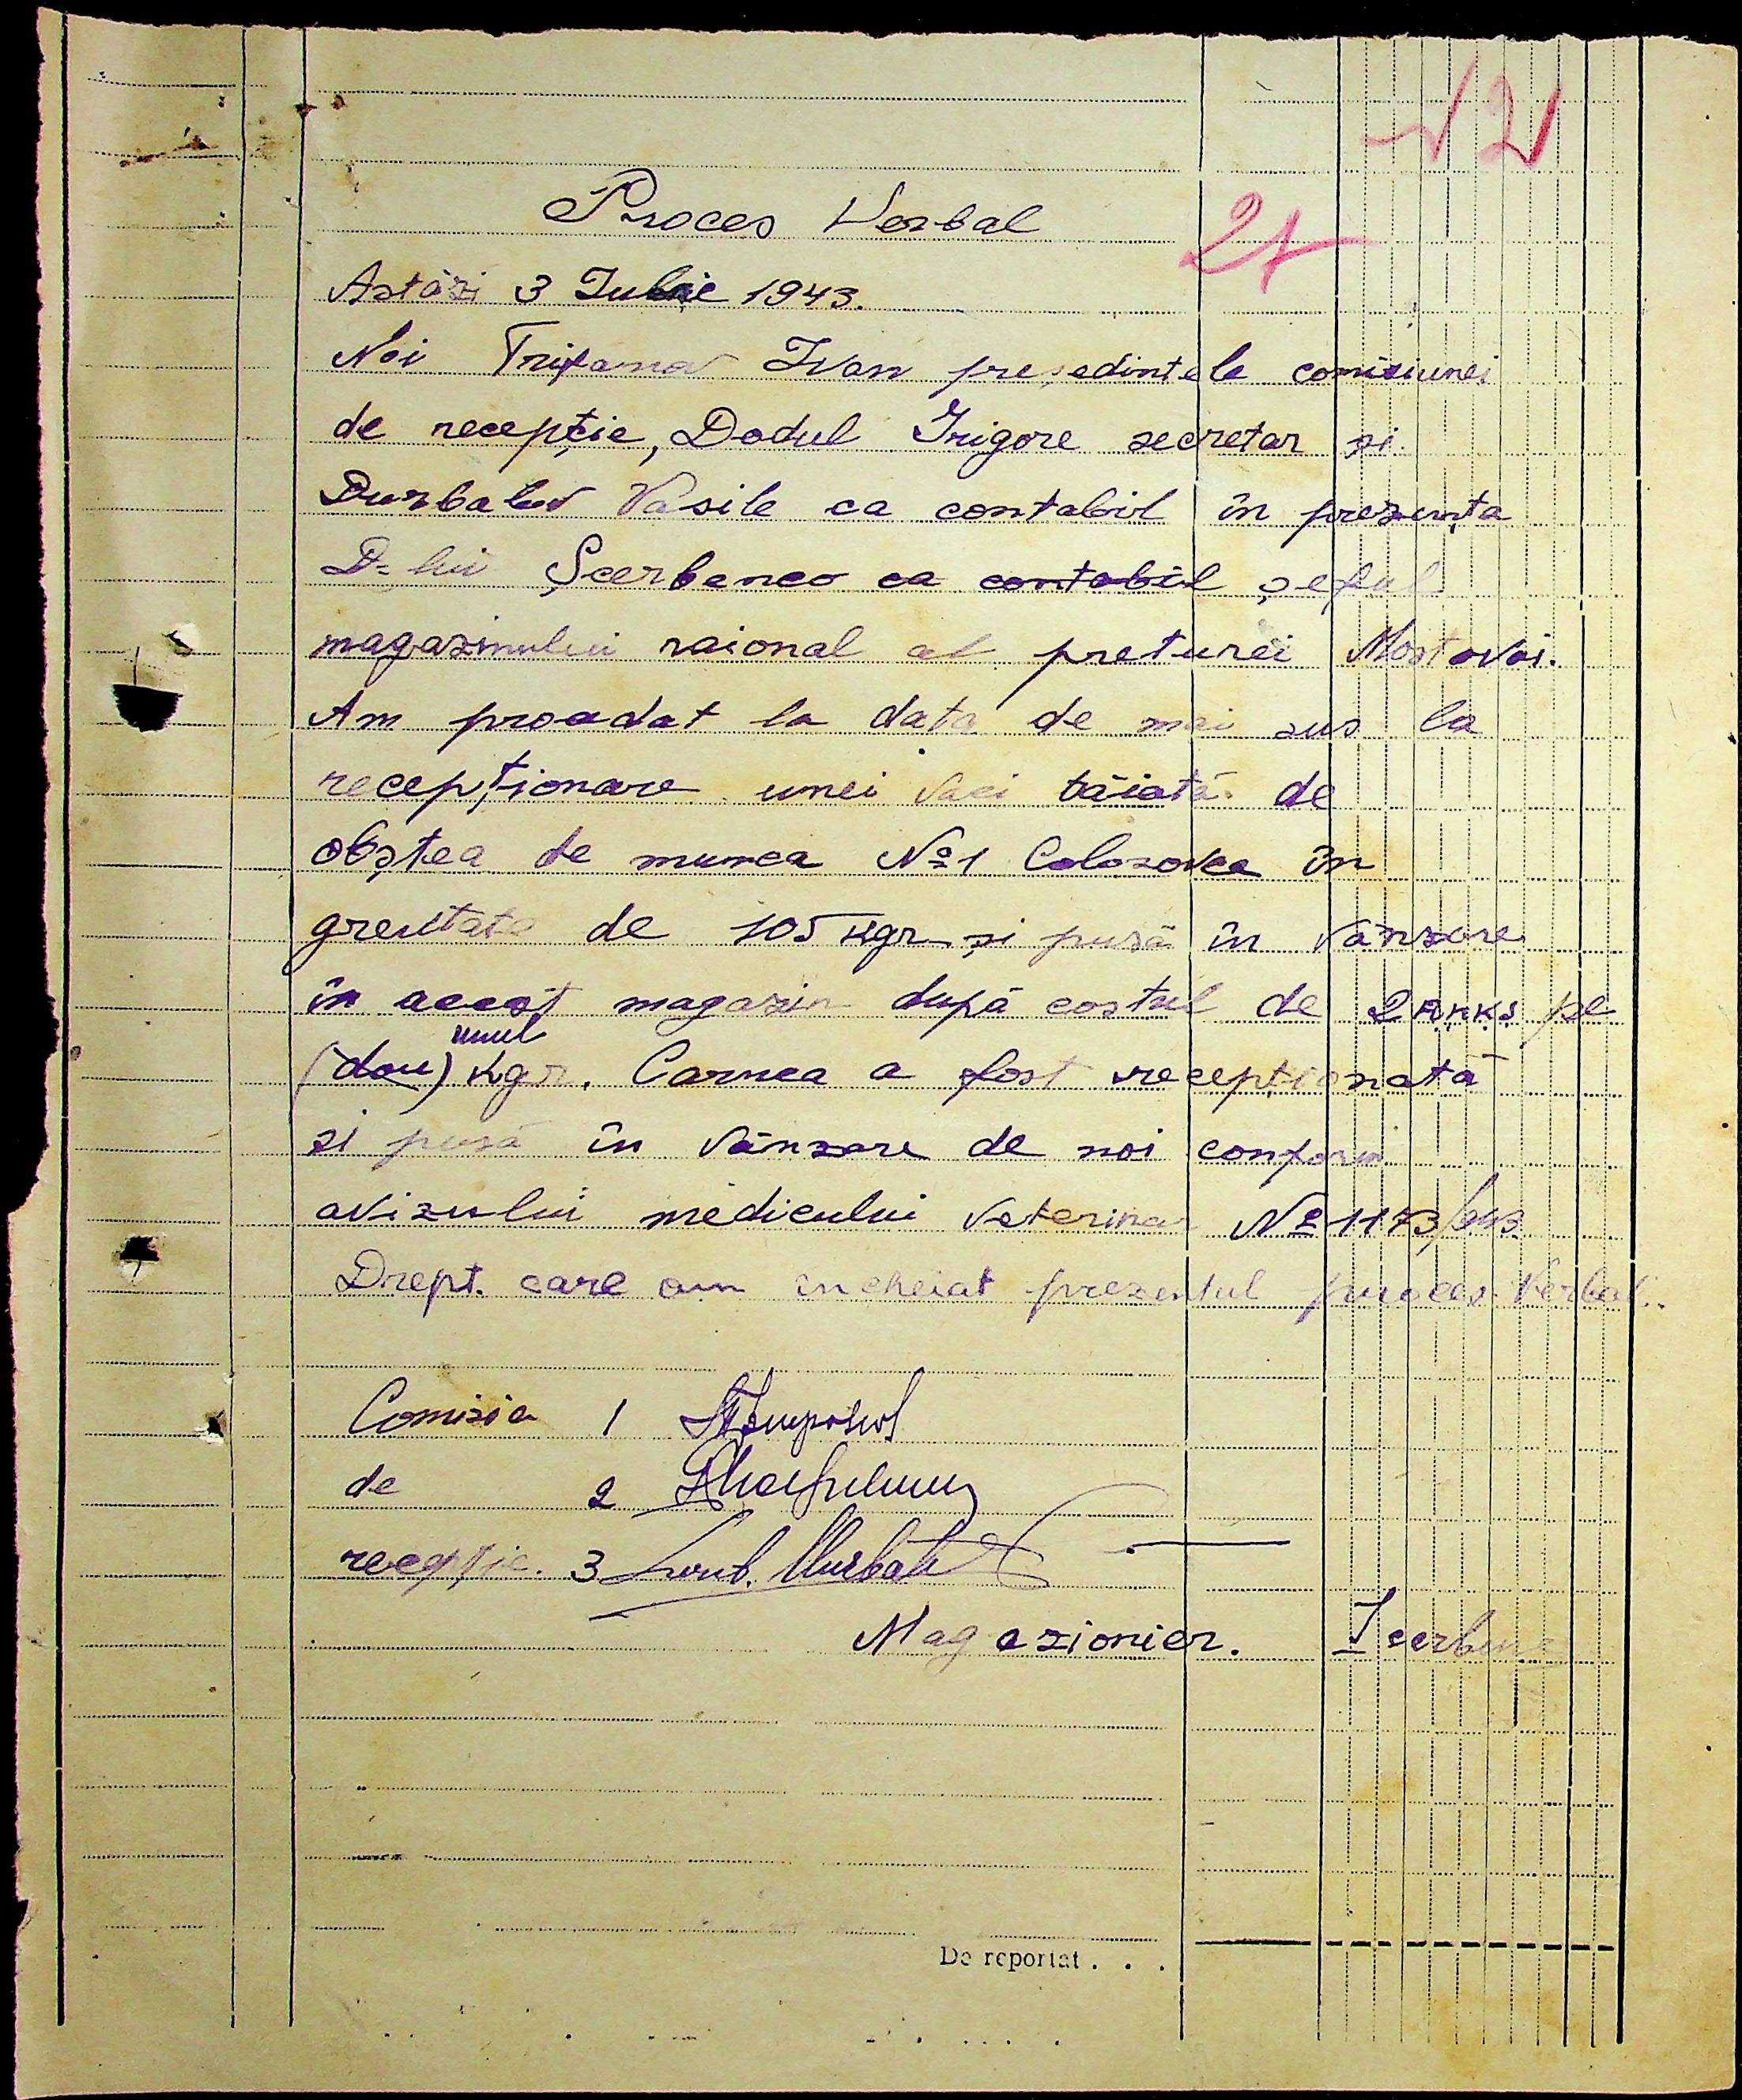 21
Proces Verbal
Astăzi 3 Iulie 1943.
Noi Trifanov Ivan președintele comisiunei
de recepție, Dodul Grigore secretar și
Durbalov Vasile ca contabil în prezența
D-lui Șcerbenco ca contabil șeful
magazinului raional al preturei Mostovoi.
Am proadat la data de mai sus la
recepționare unei vaci tăiată de
obștea de munca № 1 Colosovca în
greutate de 105 kgr și pusă în vânzare
în acest magazin după costul de 2 RKKS pe
unul
(dou) kgr. Carnea a fost recepționată
si pusă în vânzare de noi conform
avizului medicului veterinar № 1173/943
Drept care am încheiat prezentul proces Verbal.
Comisia 1
de 2
recepție. 3
Magazionier. Șcerbenco
De reportat . . .